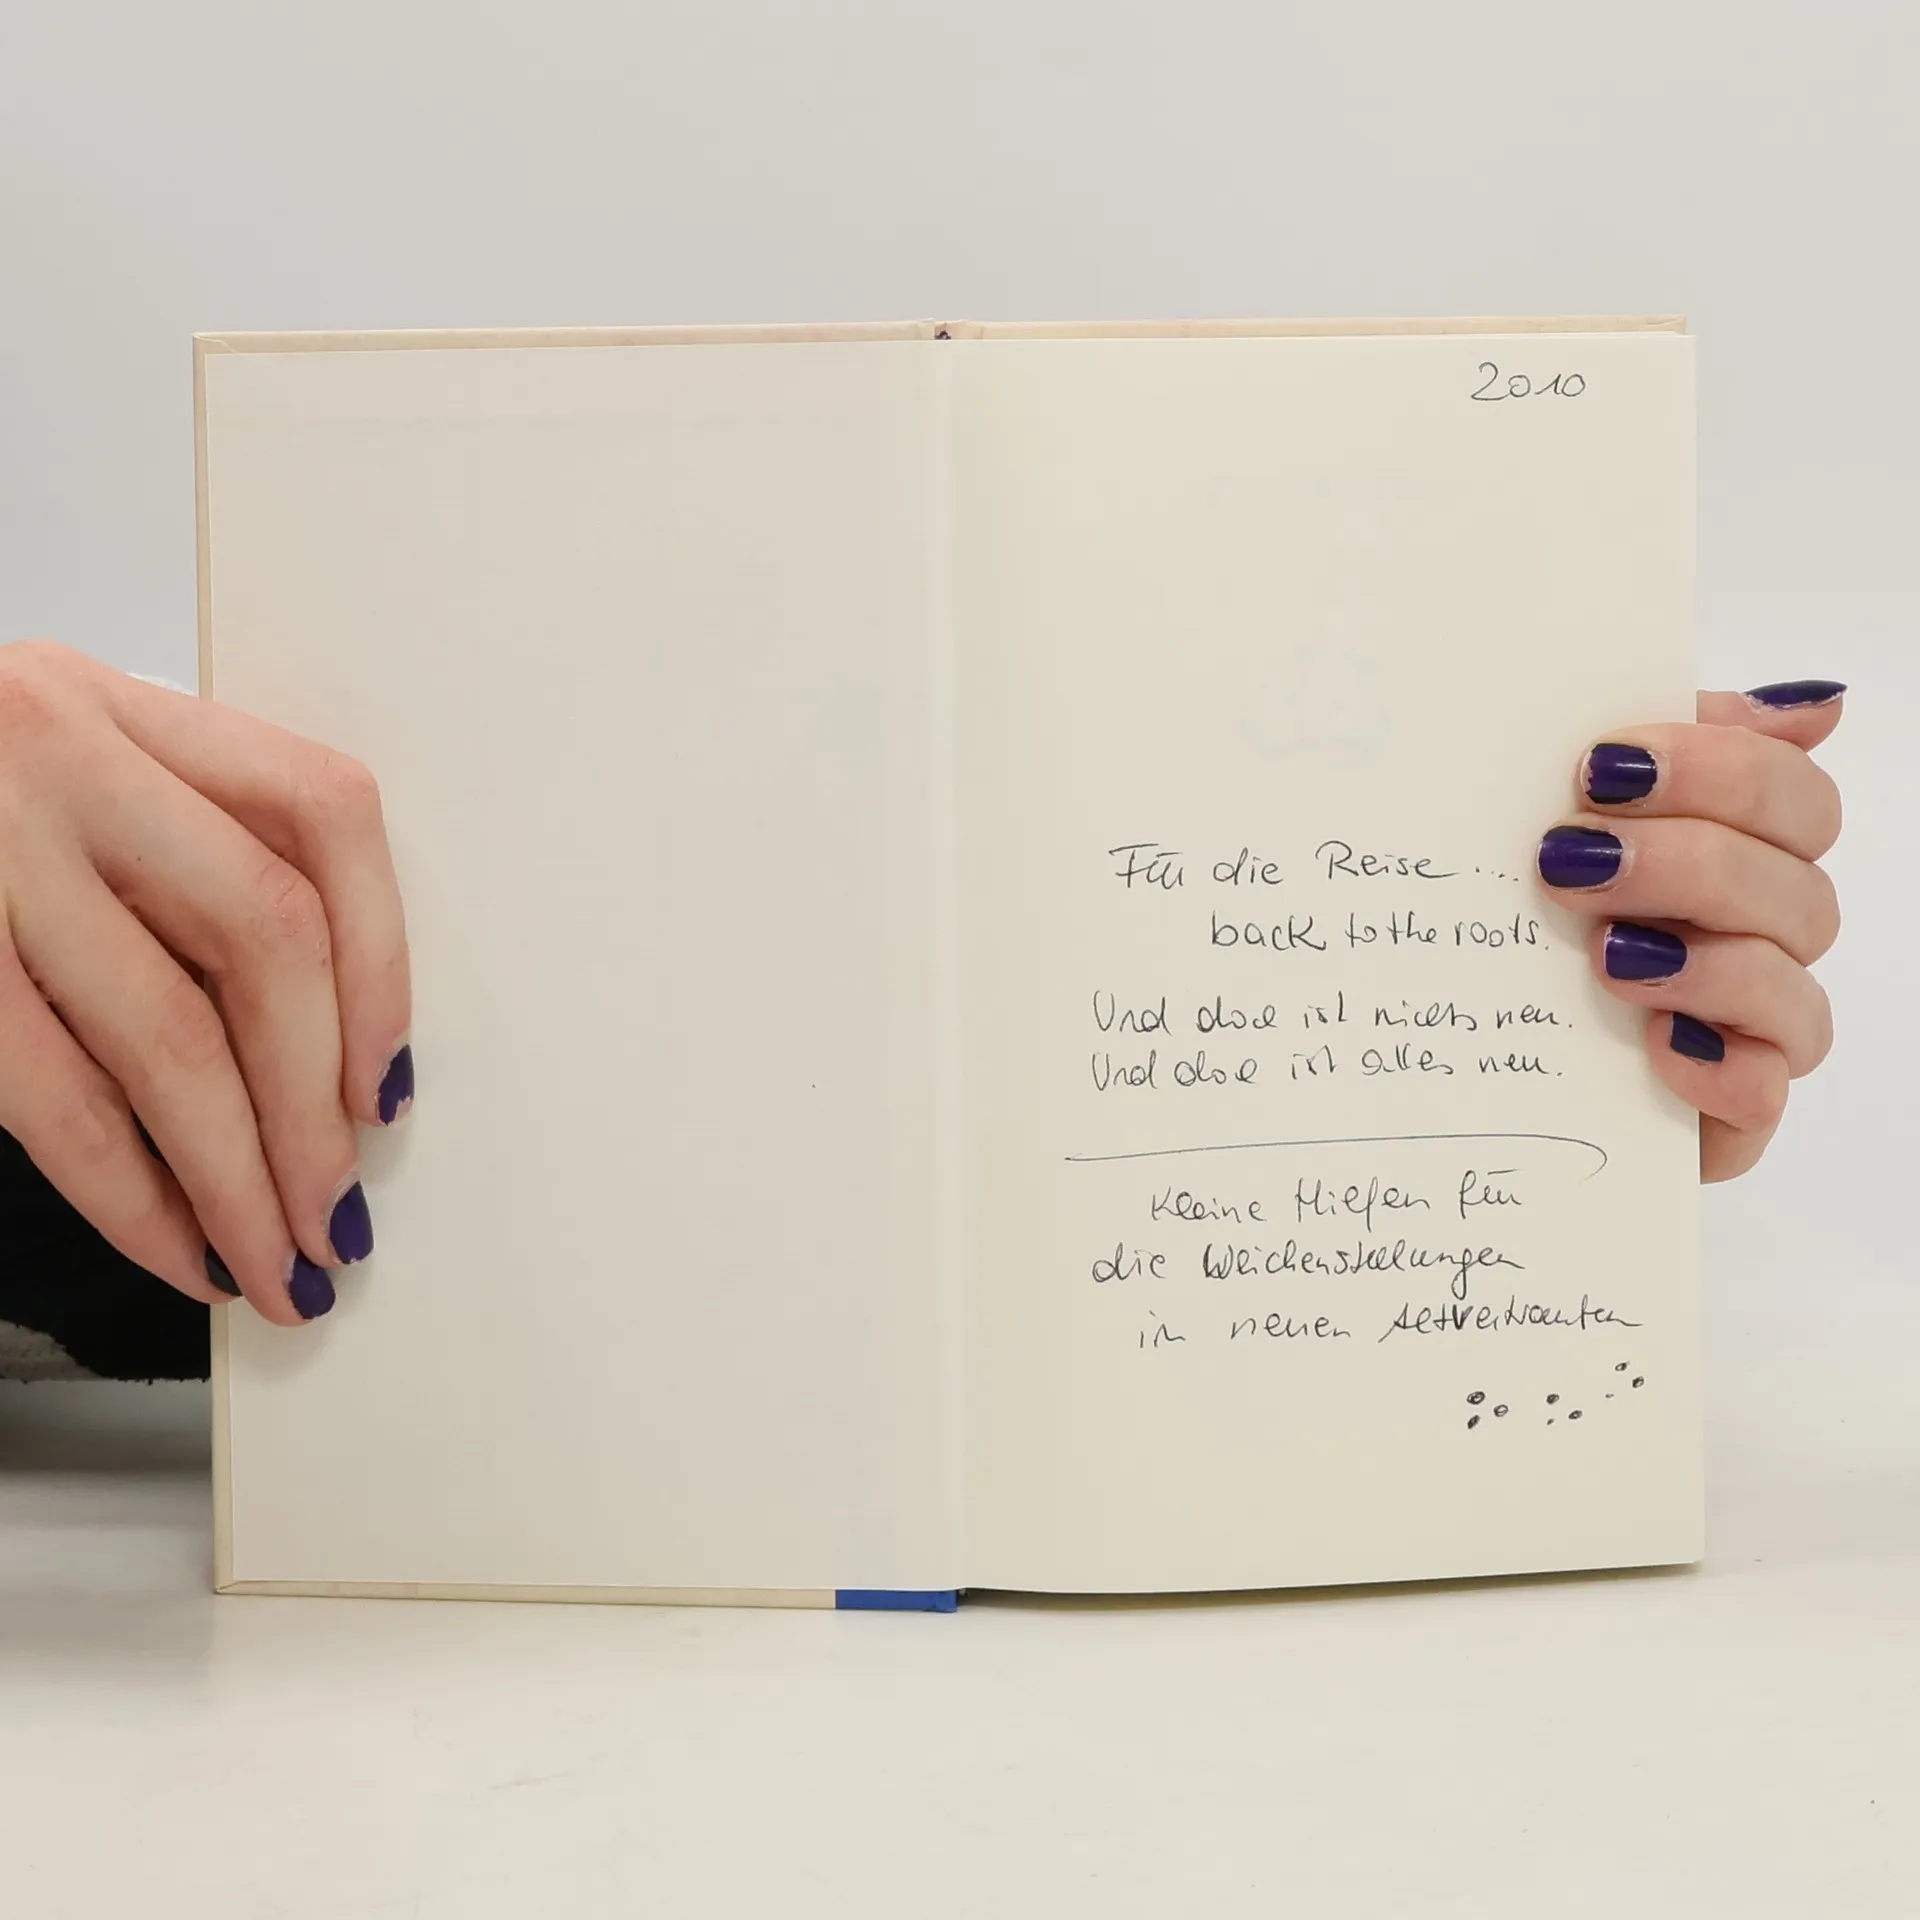 2010
Für die Reise ....
back to the roots.
Und doch ist nichts neu.
Und doch ist alles neu.
Kleine Hilfen für
die Weichenstellungen
in neuen altvertrauten